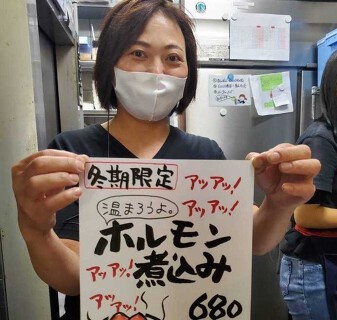 冬期限定
アッアッ!
温まろうよ。
アッアッ!
ホルモン
煮込み
アッアッ!
アッアッ!
680